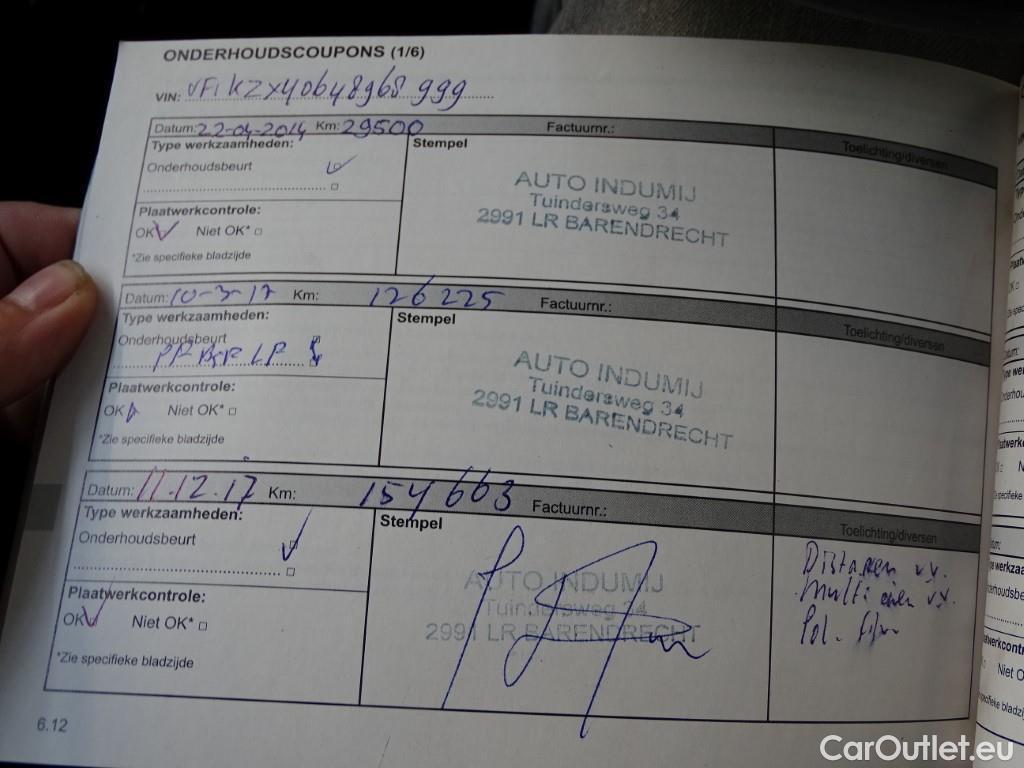 ONDERHOUDSCOUPONS (1/6)
VIN: VF1KZXY0648968999
Datum: 22-04-2014 Km: 29500 Factuurnr.: Toelichting/diversen
Type werkzaamheden: Stempel
Onderhoudsbeurt
Plaatwerkcontrole:
OK Niet OK*
*Zie specifieke bladzijde
AUTO INDUMIJ
Tuindersweg 34
2991 LR BARENDRECHT
Datum: 10-3-17 Km: 126225 Factuurnr.: Toelichting/diversen
Type werkzaamheden: Stempel
Onderhoudsbeurt
Plaatwerkcontrole:
OK Niet OK*
*Zie specifieke bladzijde
AUTO INDUMIJ
Tuindersweg 34
2991 LR BARENDRECHT
Datum: 11.12.17 Km: 154663 Factuurnr.: Toelichting/diversen
Type werkzaamheden: Stempel
Onderhoudsbeurt
Plaatwerkcontrole:
OK Niet OK*
*Zie specifieke bladzijde
AUTO INDUMIJ
Tuindersweg 34
2991 LR BARENDRECHT
multi
Pol.
6.12
CarOutlet.eu